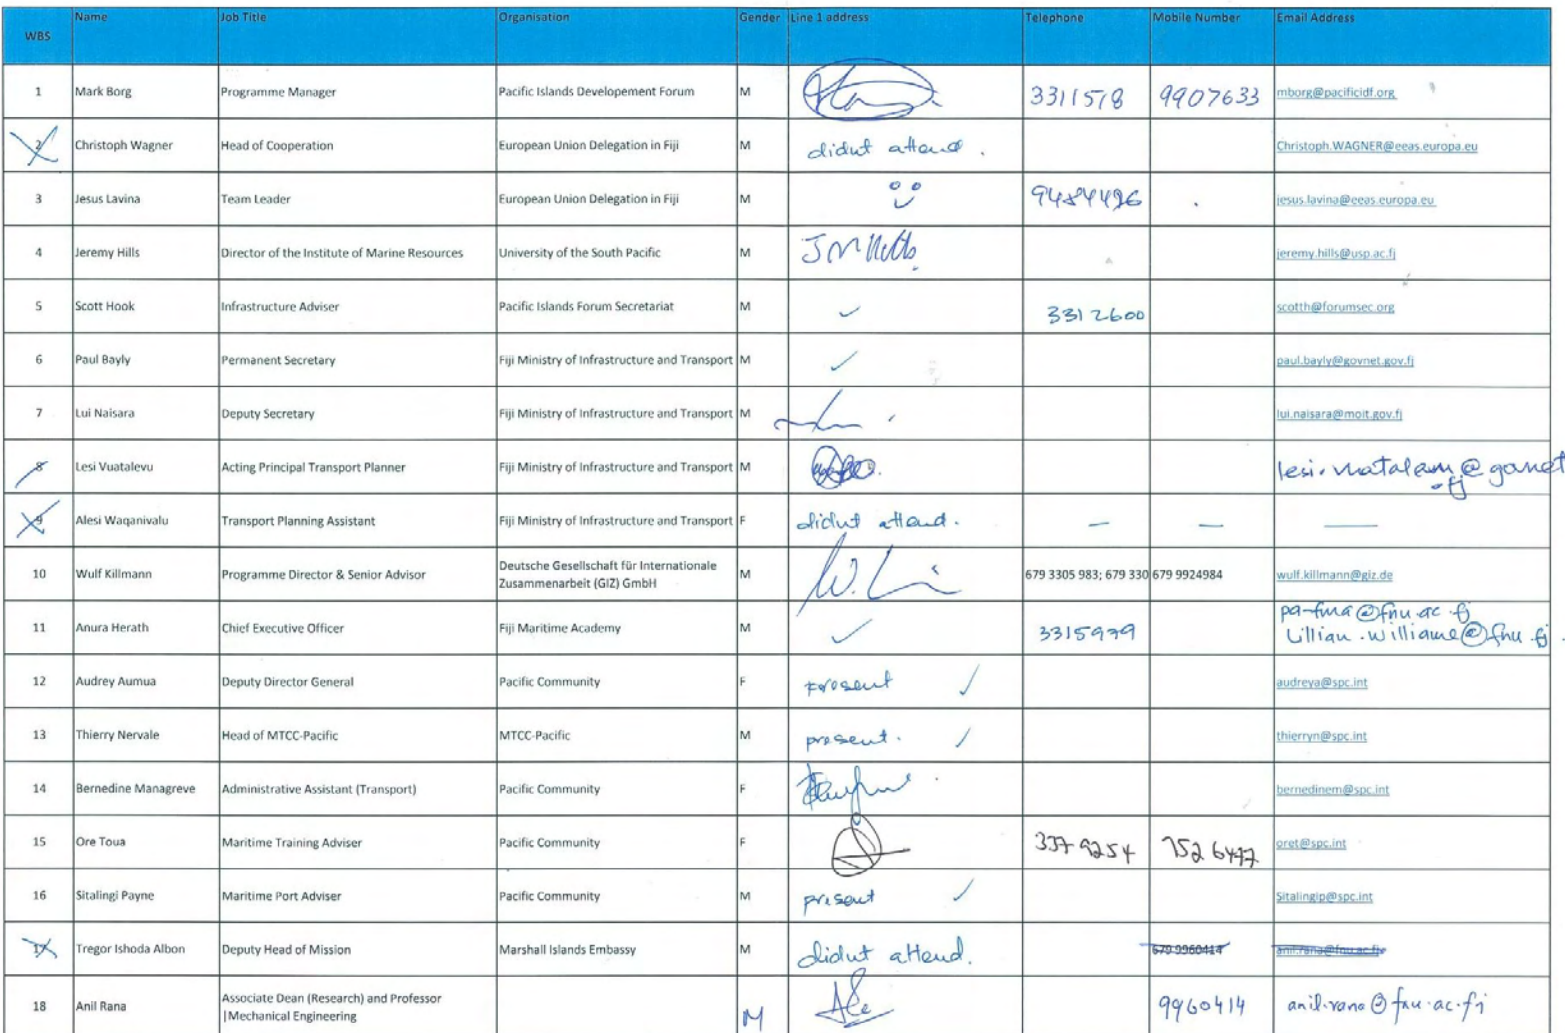 WBS Name Job Title Organisation Gender Line 1 address Telephone Mobile Number Email Address
1 Mark Borg Programme Manager Pacific Islands Developement Forum M 3311518 9907633 mborg@pacificidf.org
2 Christoph Wagner Head of Cooperation European Union Delegation in Fiji M didnt attend. Christoph.WAGNER@eeas.europa.eu
3 Jesus Lavina Team Leader European Union Delegation in Fiji M 9484496 jesus.lavina@eeas.europa.eu
4 Jeremy Hills Director of the Institute of Marine Resources University of the South Pacific M J M Hills jeremy.hills@usp.ac.fj
5 Scott Hook Infrastructure Adviser Pacific Islands Forum Secretariat M ✓ 3312600 scotth@forumsec.org
6 Paul Bayly Permanent Secretary Fiji Ministry of Infrastructure and Transport M ✓ paul.bayly@govnet.gov.fj
7 Lui Naisara Deputy Secretary Fiji Ministry of Infrastructure and Transport M lui.naisara@moit.gov.fj
8 Lesi Vuatalevu Acting Principal Transport Planner Fiji Ministry of Infrastructure and Transport M
9 Alesi Waqanivalu Transport Planning Assistant Fiji Ministry of Infrastructure and Transport F didnt attend. — — —
10 Wulf Killmann Programme Director & Senior Advisor Deutsche Gesellschaft für Internationale M 679 3305 983; 679 330 679 9924984 wulf.killmann@giz.de
Zusammenarbeit (GIZ) GmbH
pa-fma@fnu.ac.fj
11 Anura Herath Chief Executive Officer Fiji Maritime Academy M ✓ 3315979 Lillian.williame@fnu.fj.
12 Audrey Aumua Deputy Director General Pacific Community F present ✓ audreya@spc.int
13 Thierry Nervale Head of MTCC-Pacific MTCC-Pacific M present. ✓ thierryn@spc.int
14 Bernedine Managreve Administrative Assistant (Transport) Pacific Community F bernedinem@spc.int
15 Ore Toua Maritime Training Adviser Pacific Community F 337 9254 752 6497 oret@spc.int
16 Sitalingi Payne Maritime Port Adviser Pacific Community M present ✓ Sitalingip@spc.int
17 Tregor Ishoda Albon Deputy Head of Mission Marshall Islands Embassy M didnt attend. 679 9960414 anil.rana@fnu.ac.fj
Associate Dean (Research) and Professor
18 Anil Rana |Mechanical Engineering M 9960414 anil.rana@fnu.ac.fj